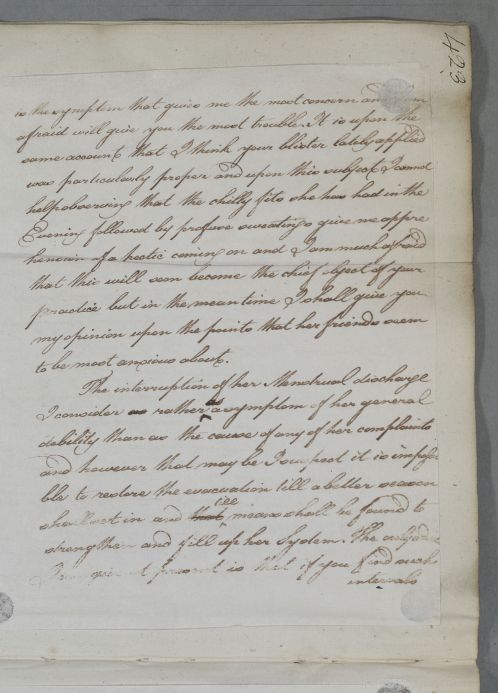 423
is the symptom that gives me the most concern and I am
afraid will give you the most trouble. It is upon the
same account that I think your blister lately applied
was particularly proper and upon this subject I cannot
help observing that the chilly fits she has had in the
Evening followed by profuse sweatings give me appre
hension of a hectic coming on and I am much afraid
that this will soon become the chief object of your
practice but in the mean time I shall give you
my opinion upon the points that her friends seem
to be most anxious about.
The interruption of her Menstrual discharge
I consider as rather as a symptom of her general
debility than as the cause of any of her complaints
and however that may be I suspect it is impossi
ble to restore the evacuation till a better season
shall set in and that till means shall be found to
strengthen and fill up her System. The only
at present is that if you find such
intervals